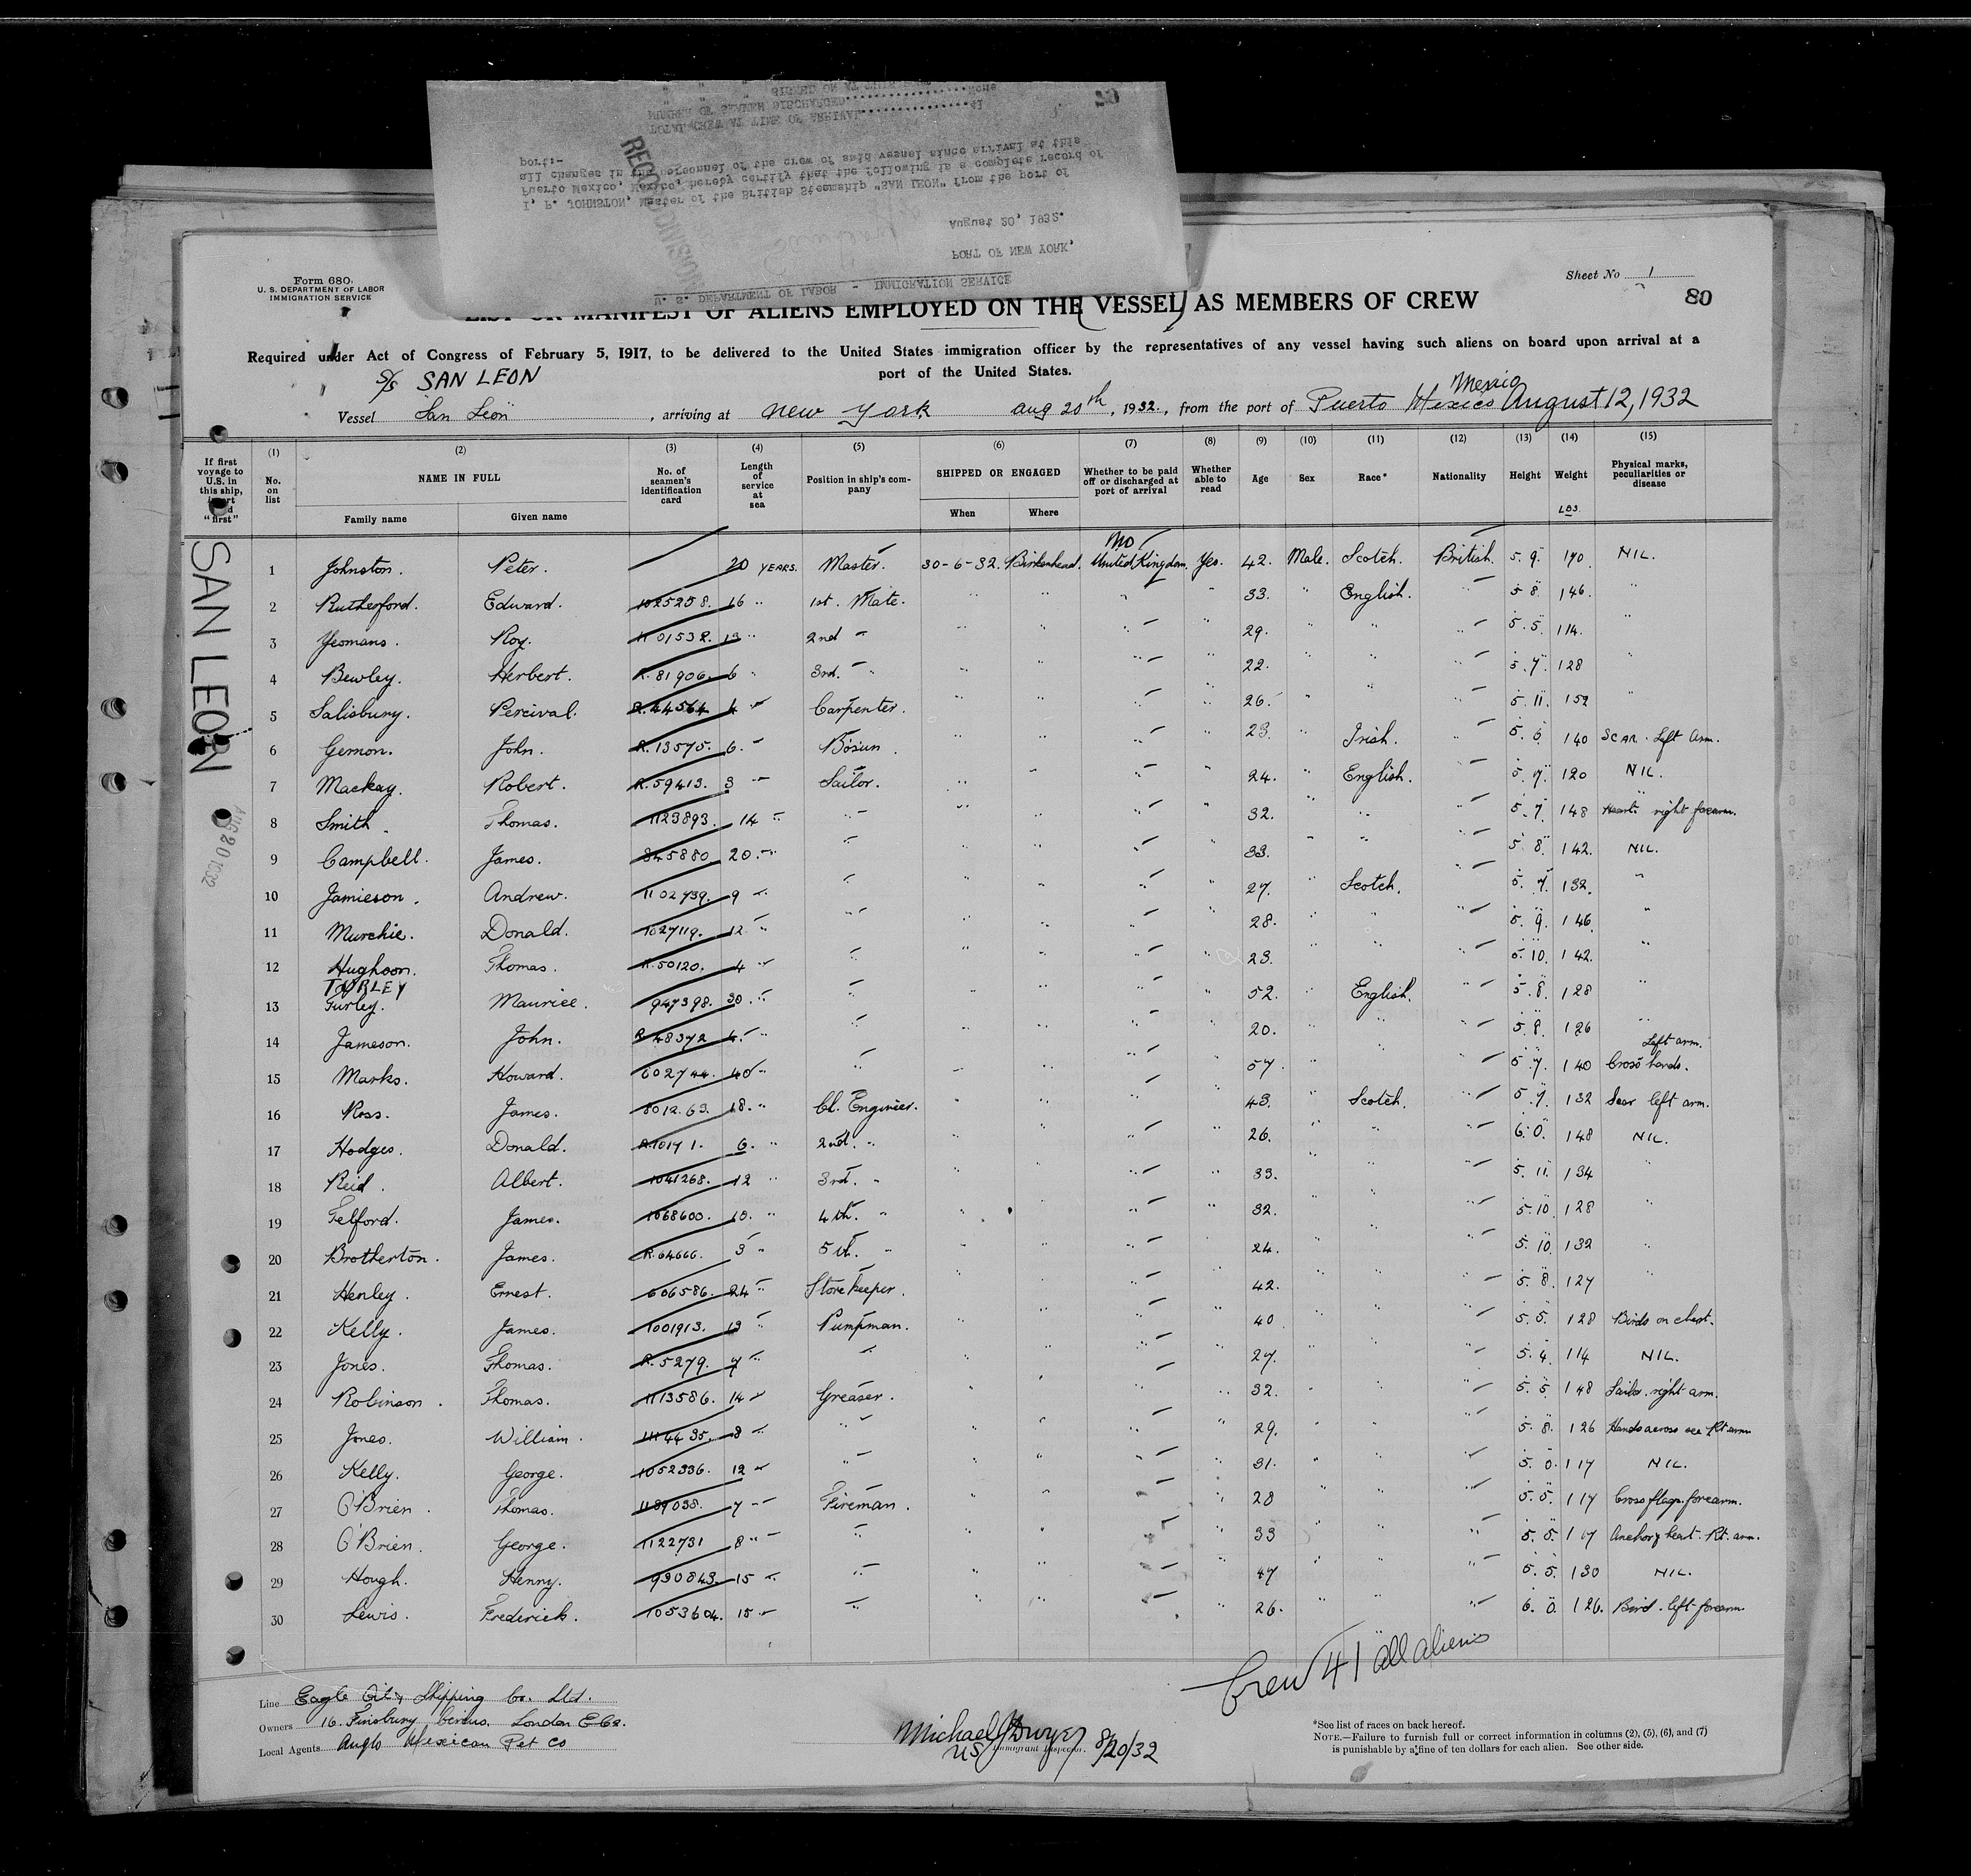 U. S. DEPARTMENT OF LABOR - IMMIGRATION SERVICE
PORT OF NEW YORK,
August 20, 1932.
I, P. JOHNSTON, Master of the British Steamship "SAN LEON" from the port of
Puerto Mexico, Mexico, hereby certify that the following is a complete record of
all changes in the personnel of the crew of said vessel since arrival at this
port:-
TOTAL CREW AT TIME OF ARRIVAL 41
NUMBER OF SEAMEN DISCHARGED None
" " " SIGNED ON AT THIS
Form 680.
U. S. DEPARTMENT OF LABOR
IMMIGRATION SERVICE
Sheet No 1
80
LIST OR MANIFEST OF ALIENS EMPLOYED ON THE VESSEL AS MEMBERS OF CREW
Required under Act of Congress of February 5, 1917, to be delivered to the United States immigration officer by the representatives of any vessel having such aliens on board upon arrival at a
port of the United States.
S/S SAN LEON
Vessel San Leon, arriving at New York Aug 20th, 1932, from the port of Puerto Mexico Mexico August 12, 1932
If first voyage to U.S. in this ship, insert "first"
(1) No. on list
(2) NAME IN FULL Family name Given name
(3) No. of seamen's identification card
(4) Length of service at sea
(5) Position in ship's company
(6) SHIPPED OR ENGAGED When Where
(7) Whether to be paid off or discharged at port of arrival
(8) Whether able to read
(9) Age
(10) Sex
(11) Race*
(12) Nationality
(13) Height
(14) Weight LBS.
(15) Physical marks, peculiarities or disease
SAN LEON
AUG 20 1932
No
1 Johnston. Peter. 20 YEARS. Master. 30-6-32. Birkenhead. United Kingdom. Yes. 42. Male. Scotch. British. 5. 9. 170. NIL.
2 Rutherford. Edward. 1025258. 16 " 1st. Mate. " " " " 33. " English. " 5 8. 146. "
3 Yeomans. Roy. 1101532. 13 " 2nd " " " " " 29. " " " 5. 5. 114. "
4 Bewley. Herbert. R.81906. 6 " 3rd. " " " " " 22. " " " 5. 7. 128 "
5 Salisbury. Percival. R.44564 4 " Carpenter. " " " " 26. " " " 5. 11. 152 "
6 Gernon. John. R.13575. 6. " Bosun. " " " " 23. " Irish. " 5. 6. 140 SCAR. Left Arm.
7 Mackay. Robert. R.59413. 3 " Sailor. " " " " 24. " English. " 5. 7. 120 NIL.
8 Smith. Thomas. 1123893. 14 " " " " " " 32. " " " 5. 7. 148 Heart right forearm.
9 Campbell. James. 845880. 20. " " " " " " 33. " " " 5 8. 142. NIL.
10 Jamieson. Andrew. 1102739. 9 " " " " " " 27. " Scotch. " 5. 7. 132. "
11 Murchie. Donald. 1027119. 12 " " " " " " 28. " " " 5. 9. 146. "
12 Hughson. Thomas. R.50120. 4 " " " " " " 23. " " " 5. 10. 142. "
TURLEY
13 Turley. Maurice. 947398. 30. " " " " " " 52. " English. " 5. 8. 128 "
14 Jameson. John. R 48372 4. " " " " " " 20. " " " 5. 8. 126 "
15 Marks. Howard. 602744. 40 " " " " " " 57. " " " 5. 7. 140 Left arm. Cross hands.
16 Ross. James. 801263. 18. " Ch. Engineer. " " " " 43. " Scotch. " 5 7. 132 Scar left arm.
17 Hodges. Donald. R.10171. 6. " 2nd. " " " " " 26. " " " 6. 0. 148 NIL.
18 Reid. Albert. 1041268. 12 " 3rd. " " " " " 33. " " " 5. 11. 134 "
19 Telford. James. 1068600. 10. " 4th. " " " " " 32. " " " 5. 10. 128 "
20 Brotherton. James. R.64666. 3 " 5th. " " " " " 24. " " " 5. 10. 132 "
21 Henley. Ernest. 606586. 24 " Storekeeper. " " " " 42. " " " 5. 8. 127 "
22 Kelly. James. 1001913. 13 " Pumpman. " " " " 40 " " " 5. 5. 128 Birds on chest.
23 Jones. Thomas. R.5279. 7 " " " " " " 27. " " " 5. 4. 114 NIL.
24 Robinson. Thomas. 1113586. 14 " Greaser. " " " " 32. " " " 5. 5. 148 Sailor. right arm.
25 Jones. William. 1114435. 8 " " " " " " 29. " " " 5. 8. 126 Hands across sea Rt arm
26 Kelly. George. 1052336. 12 " " " " " " 31. " " " 5. 0. 117 NIL.
27 O'Brien. Thomas. 1189038. 7 " Fireman. " " " " 28 " " " 5. 5. 117 Cross flags. forearm.
28 O'Brien. George. 1122731 8 " " " " " " 33 " " " 5. 5. 107 Anchor & heart. Rt. arm.
29 Hough. Henry. 930843. 15 " " " " " " 47 " " " 5. 5. 130 NIL.
30 Lewis. Frederick. 1053604. 15 " " " " " " 26. " " " 6. 0. 126. Bird. left forearm.
Crew 41 all aliens
Line Eagle Oil & Shipping Co. Ltd.
Owners 16. Finsbury Circus. London E.C.2.
Local Agents Anglo Mexican Pet Co
Michael J Dwyer 8/20/32
US Immigrant Inspector.
*See list of races on back hereof.
NOTE.—Failure to furnish full or correct information in columns (2), (5), (6), and (7)
is punishable by a fine of ten dollars for each alien. See other side.